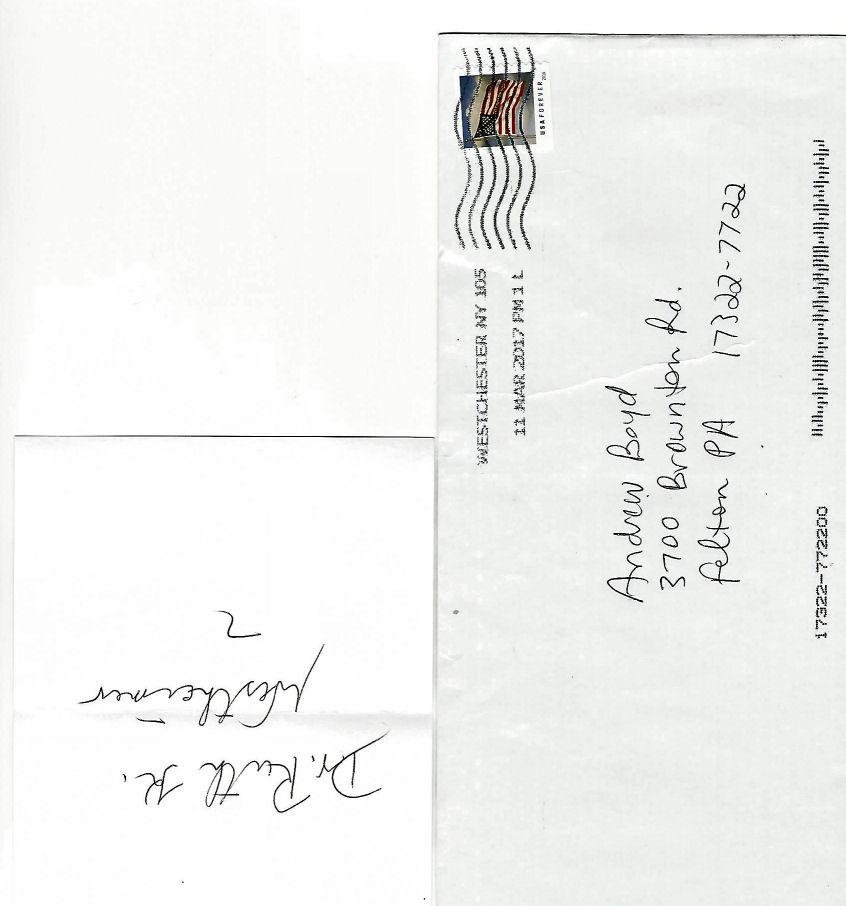 USA FOREVER
WESTCHESTER NY 105
11 MAR 2017 PM 1 L
Andrew Boyd
3700 Brownton Rd.
Felton PA 17322-7722
17322-772200
Dr. Ruth K.
Westheimer